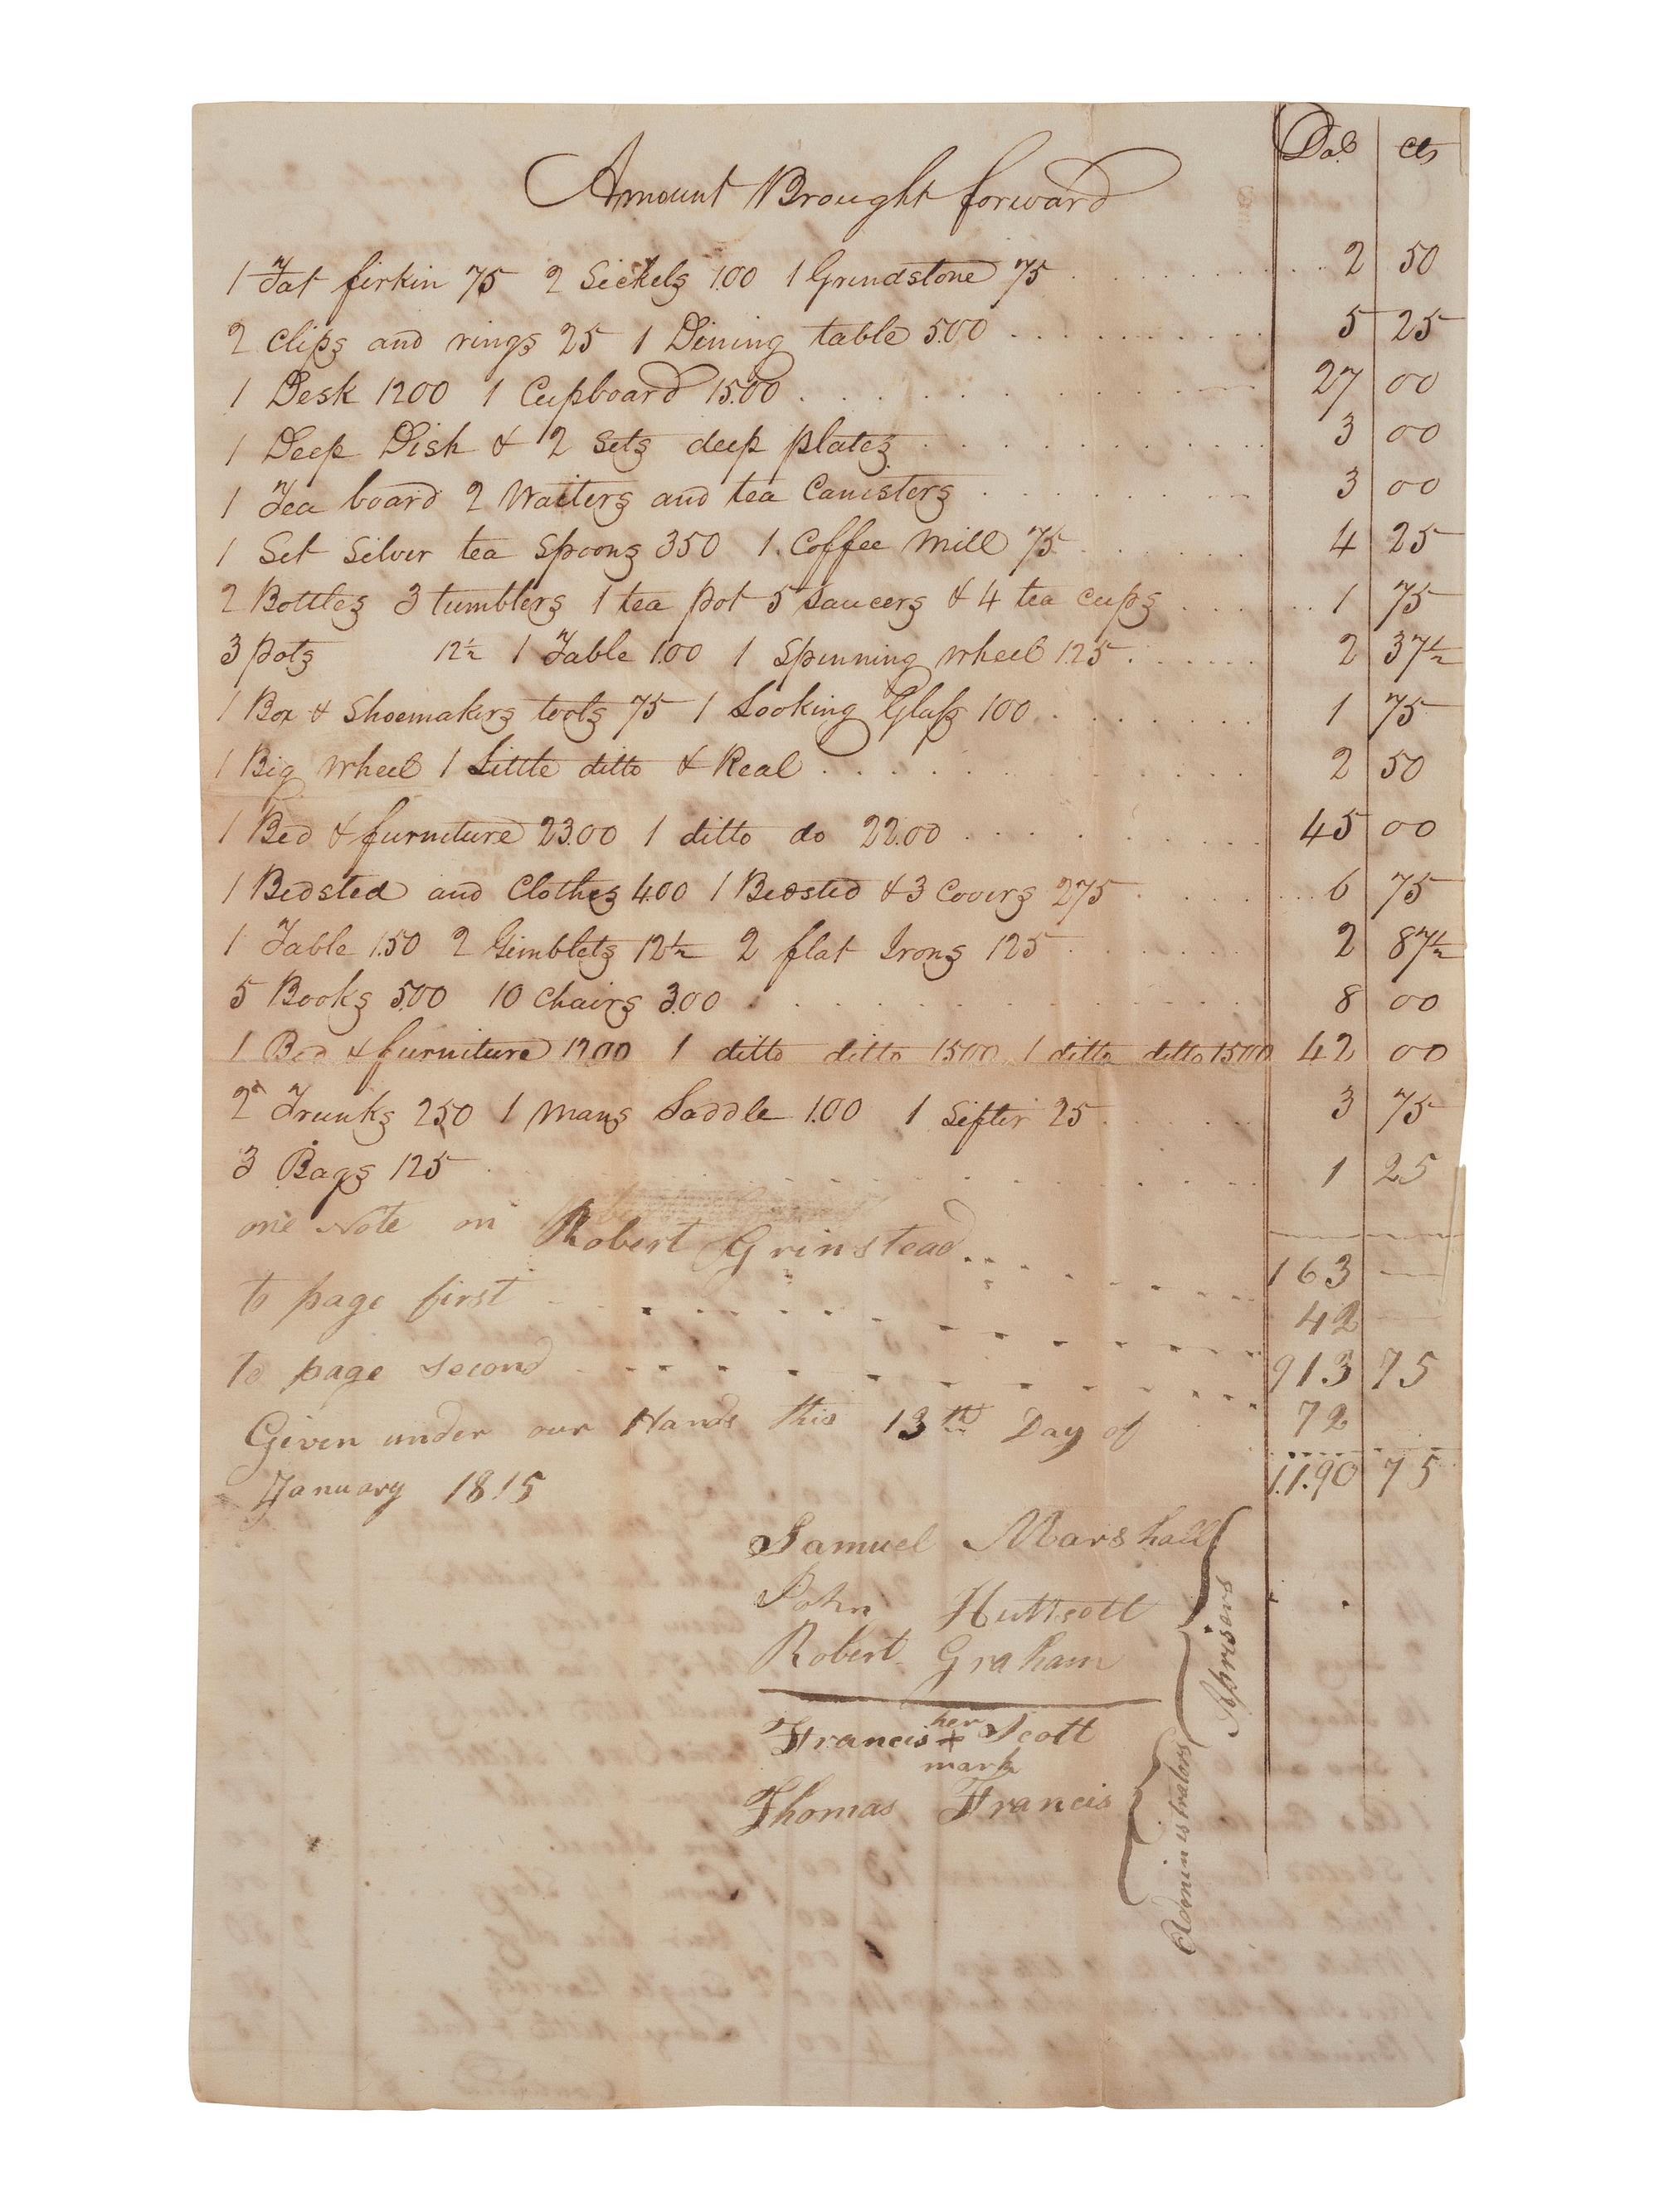 Dol. cts
Amount Brought forward
1 Fat firkin 75 2 Sickels 1.00 1 Grindstone 75 2 50
2 Clips and rings 25 1 Dining table 5.00 5 25
1 Desk 12.00 1 Cupboard 15.00 27 00
1 Deep Dish & 2 Sets deep plates 3 00
1 Tea board 2 Waiters and tea Canisters 3 00
1 Set Silver tea Spoons 350 1 Coffee mill 75 4 25
2 Bottles 3 tumblers 1 tea pot 5 saucers & 4 tea cups 1 75
3 pots 12½ 1 Table 1.00 1 Spinning wheel 1.25 2 37½
1 Box & Shoemakers tools 75 1 Looking Glass 100 1 75
1 Big wheel 1 Little ditto & Real 2 50
1 Bed & furniture 23.00 1 ditto do 22.00 45 00
1 Bedsted and Clothes 4.00 1 Bedsted & 3 Covers 275 6 75
1 Table 1.50 2 Gimblets 12½ 2 flat Irons 125 2 87½
5 Books 5.00 10 Chairs 3.00 8 00
1 Bed & furniture 12.00 1 ditto ditto 1500 1 ditto ditto 1500 42 00
2 Trunks 250 1 mans Saddle 1.00 1 Sifter 25 3 75
3 Bags 125 1 25
one Note on Robert Grinstead 163
to page first 42
to page second 913 75
Given under our Hands this 13th Day of 72
January 1815 1190 75
Samuel Marshall
John Huttsott
Robert Graham
Aprisers
Francis her + mark Scott
Thomas Francis
Administrators